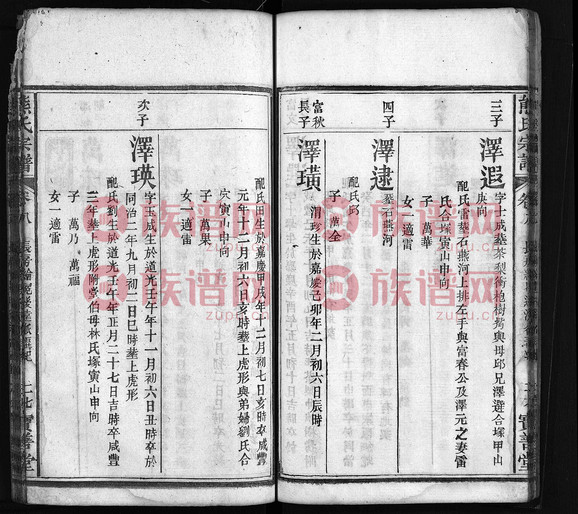 熊氏宗譜
卷八
寶善堂
三子
澤遐
字士成葬茶梨衝枹樹塆與母邱兄澤遊合塚甲山
庚向
配氏雷葬石燕河上排生手與富春公及澤元之妻雷
氏合塚寅山申向
子 萬華
女一適雷
四子
澤逮
葬石燕河
配氏邱
子 萬全
富秋
長子
澤璜
渭珍生於嘉慶己卯年二月初六日辰時
配氏田生於嘉慶甲戌年十二月初七日亥時卒咸豐
元年十一月初六日亥時葬上虎形與弟婦劉氏合
穴寅山申向
子 萬果
女一適雷
次子
澤瑛
字玉成生於道光壬午年十一月初六日丑時卒於
同治二年九月初二日巳時葬上虎形
配氏劉生於道光壬午年正月二十七日吉時卒咸豐
三年葬上虎形附葬伯母林氏塚寅山申向
子 萬乃 萬福
女一適雷
熊氏宗譜
卷八
寶善堂
族谱网
zupu.cn